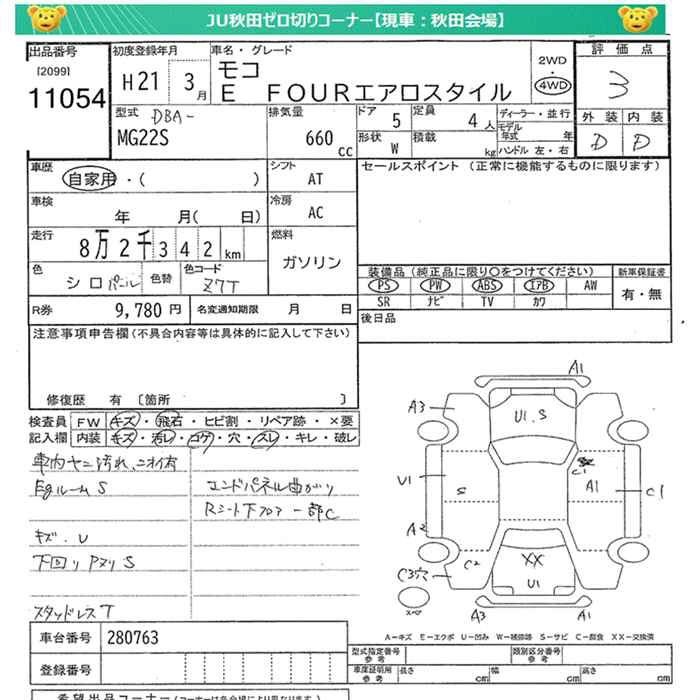 JU秋田ゼロ切りコーナー【現車：秋田会場】
出品番号
[2099]
11054
初度登録年月
H21 3月
車名・グレード
モコ
E FOURエアロスタイル
2WD
・
4WD
評価点
3
外装 内装
D D
型式 DBA-
MG22S
排気量
660 cc
ドア 5
定員 4人
形状 W
積載 kg
ディーラー・並行
モデル年式 年
ハンドル 左・右
車歴
自家用・( )
シフト
AT
車検
年 月( 日)
冷房
AC
走行
8万2千342km
燃料
ガソリン
色
シロパール
色替
色コード
Z7T
R券 9,780円
名変通知期限 月 日
セールスポイント (正常に機能するものに限ります)
装備品(純正品に限り○をつけてください)
PS PW ABS エアB AW
SR ナビ TV カワ
新車保証書
有・無
後日品
注意事項申告欄(不具合内容等は具体的に記入して下さい)
修復歴 有 〔箇所 〕
検査員記入欄
FW キズ・飛石・ヒビ割・リペア跡・×要
内装 キズ・汚レ・コゲ・穴・スレ・キレ・破レ
車内ヤニ汚れ、ニオイ有
EgルームS
キズ.U
下回りPヌリS
スタッドレスT
エンドパネル曲がり
Rシート下フロアー部C
A1
A3
U1.S
C1
U1
S
A1
C1
A2
C2
XX
U1
C3穴
スペ
A3
A1
A－キズ E－エクボ U－凹み W－補修跡 S－サビ C－腐食 XX－交換済
車台番号 280763
登録番号
型式指定番号
参考
類別区分番号
参考
車庫証明用
参考
長さ cm
幅 cm
高さ cm
希望出品コーナー(コーナーは各会場により異なります)